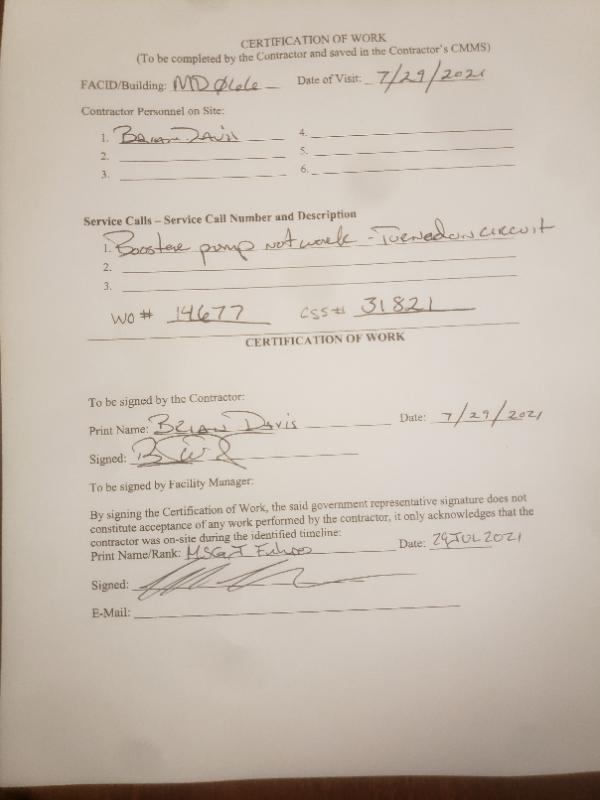 CERTIFICATION OF WORK
(To be completed by the Contractor and saved in the Contractor's CMMS)
FACID/Building: MD Ø66 Date of Visit: 7/29/2021
Contractor Personnel on Site:
1. Brian Davis 4.
2. 5.
3. 6.
Service Calls – Service Call Number and Description
1. Booster pump not work - Turned on circuit
2.
3.
WO # 14677 CSS# 31821
CERTIFICATION OF WORK
To be signed by the Contractor:
Print Name: Brian Davis Date: 7/29/2021
Signed:
To be signed by Facility Manager:
By signing the Certification of Work, the said government representative signature does not
constitute acceptance of any work performed by the contractor, it only acknowledges that the
contractor was on-site during the identified timeline:
Print Name/Rank: MSGT Date: 29JUL2021
Signed:
E-Mail: